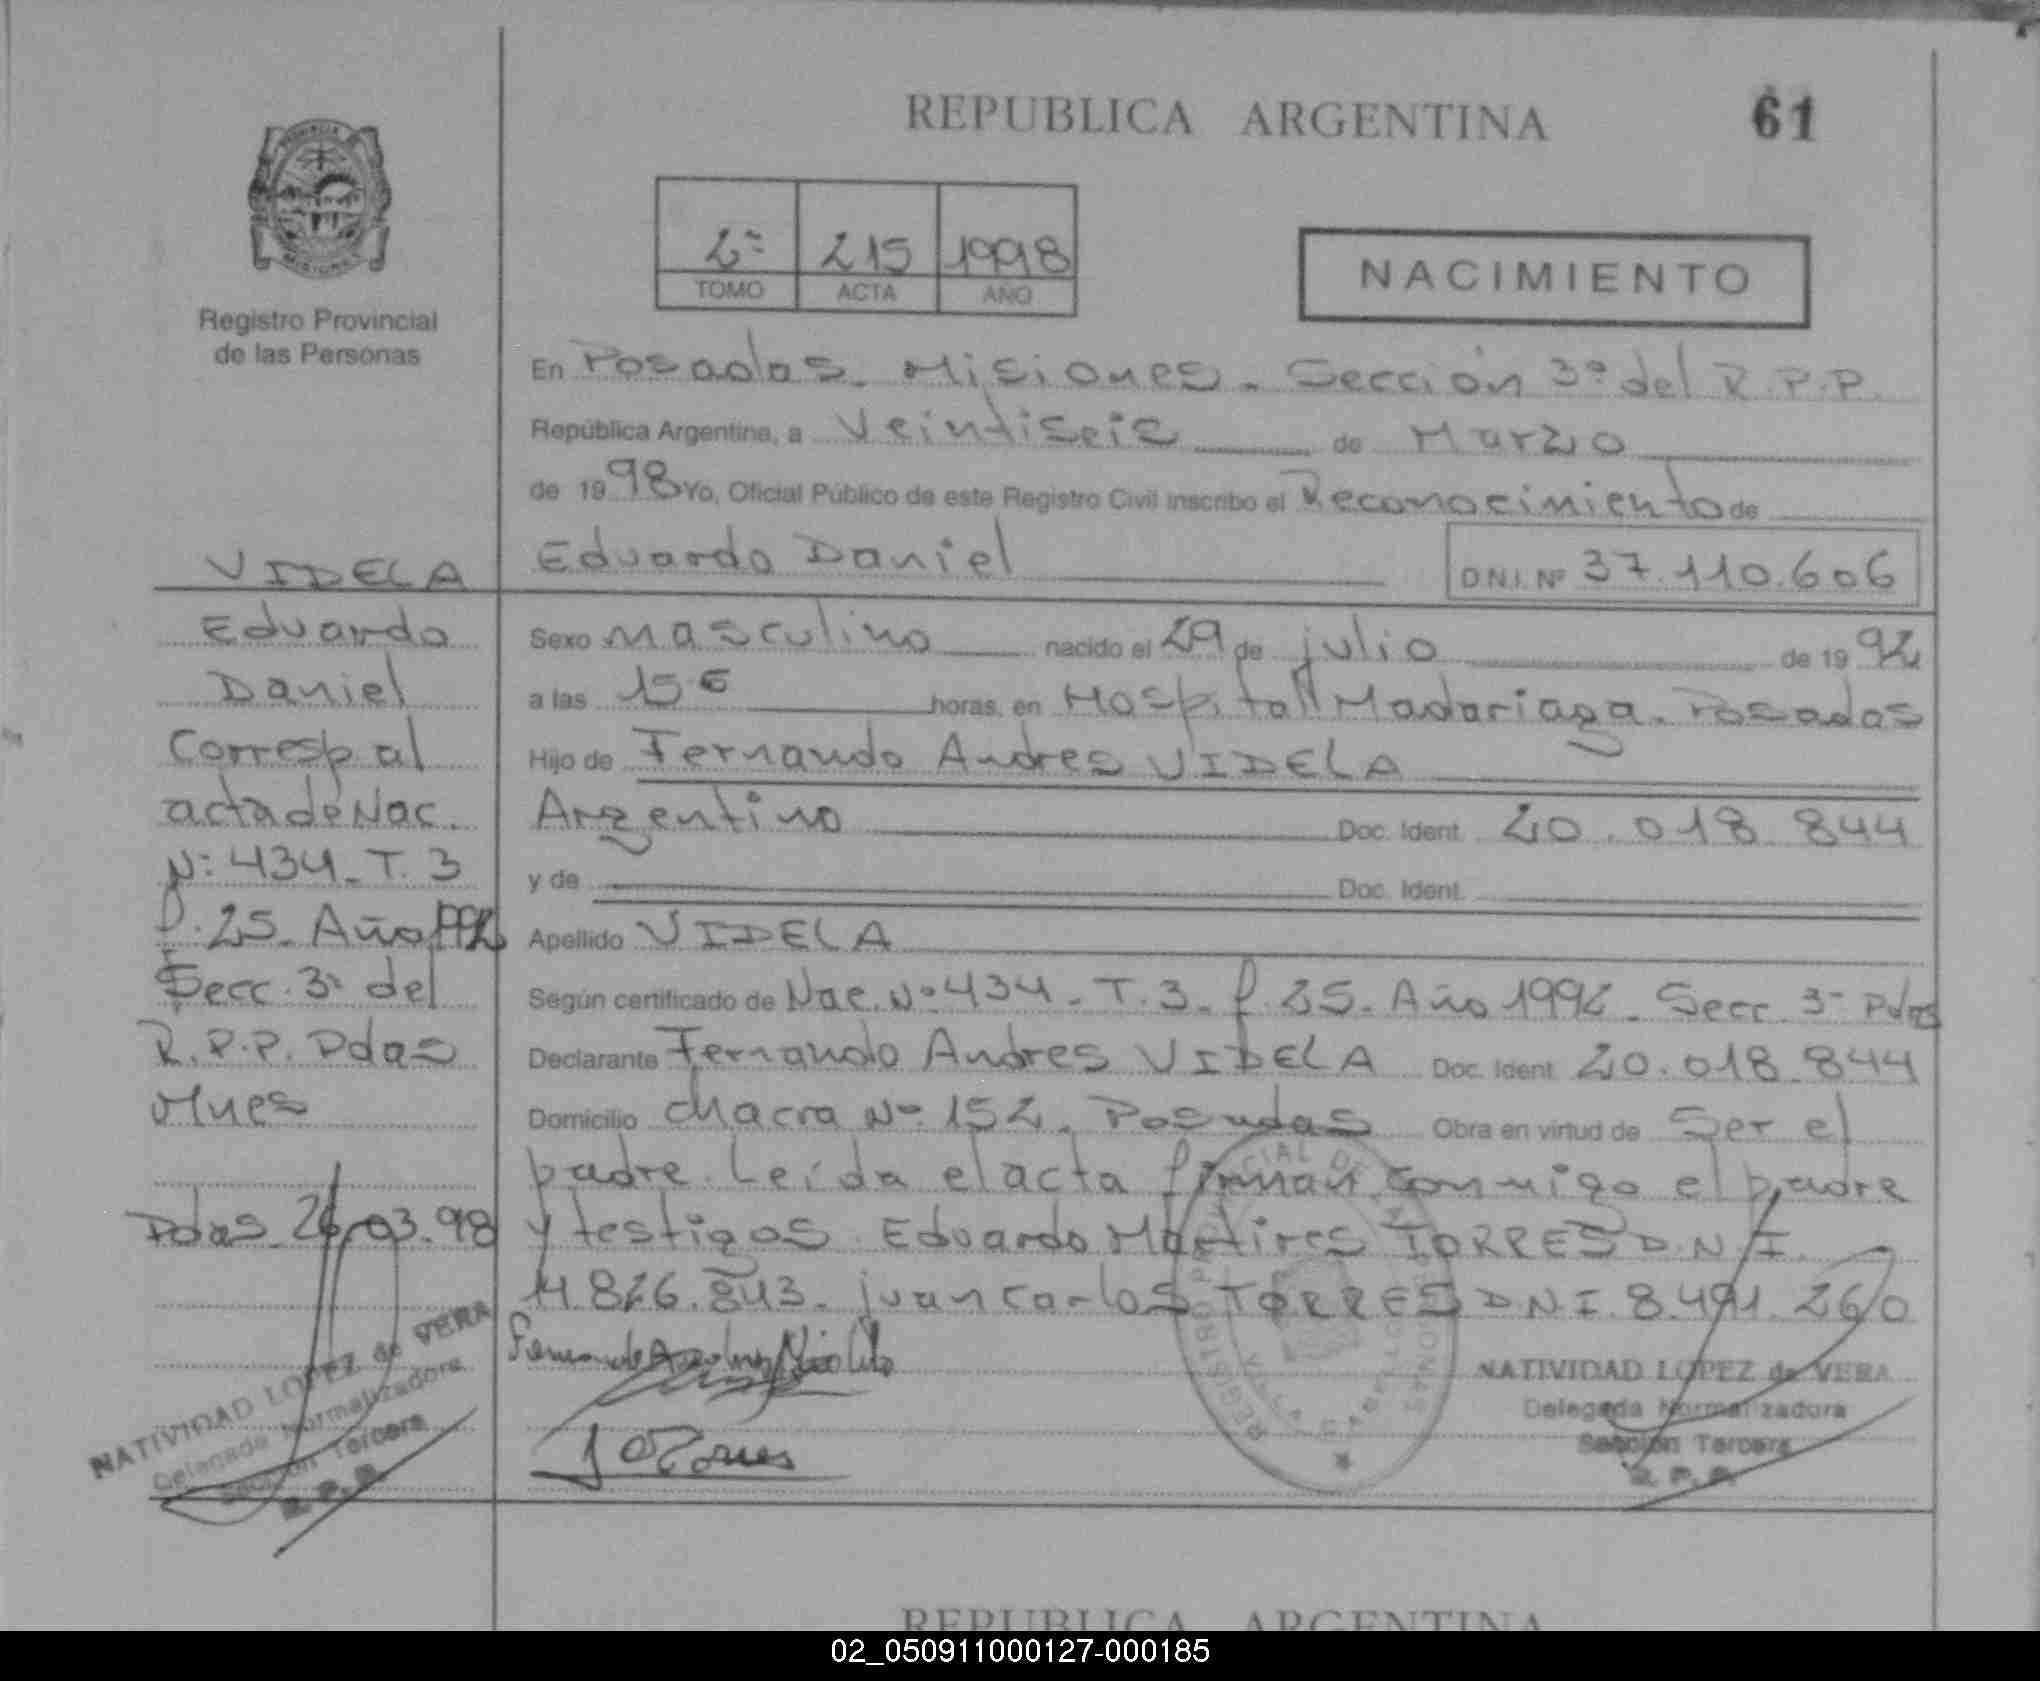 REPUBLICA ARGENTINA 61
2º 215 1998
TOMO ACTA AÑO
NACIMIENTO
Registro Provincial
de las Personas
En Posadas. Misiones. Sección 3ª del R.P.P.
República Argentina, a Veintiseis de Marzo
de 1998 Yo, Oficial Público de este Registro Civil inscribo el Reconocimiento de
Eduardo Daniel D.N.I. Nº 37.110.606
Sexo masculino nacido el 29 de julio de 1992
a las 15 horas, en Hospital Madariaga. Posadas
Hijo de Fernando Andres VIDELA
Argentino Doc. Ident. 20.018.844
y de Doc. Ident.
Apellido VIDELA
Según certificado de Nac. Nº 434. T.3. f. 25. Año 1992. Secc. 3ª Pdas
Declarante Fernando Andres VIDELA Doc. Ident. 20.018.844
Domicilio chacra Nº 152. Posadas Obra en virtud de Ser el
padre. Leída el acta firman conmigo el padre
y testigos. Eduardo Martires TORRES D.N.I.
826.843. juan Carlos TORRES D.N.I. 8.491.260
NATIVIDAD LOPEZ de VERA
Delegada Normalizadora
Sección Tercera
R. P. P.
VIDELA
Eduardo
Daniel
Corresp. al
acta de Nac.
Nº: 434. T. 3
f. 25. Año 1992
Secc. 3ª del
R.P.P. Pdas
Mnes
Pdas. 26.03.98
NATIVIDAD LOPEZ de VERA
Delegada Normalizadora
Sección Tercera
R. P. P.
REPUBLICA ARGENTINA
02_050911000127-000185